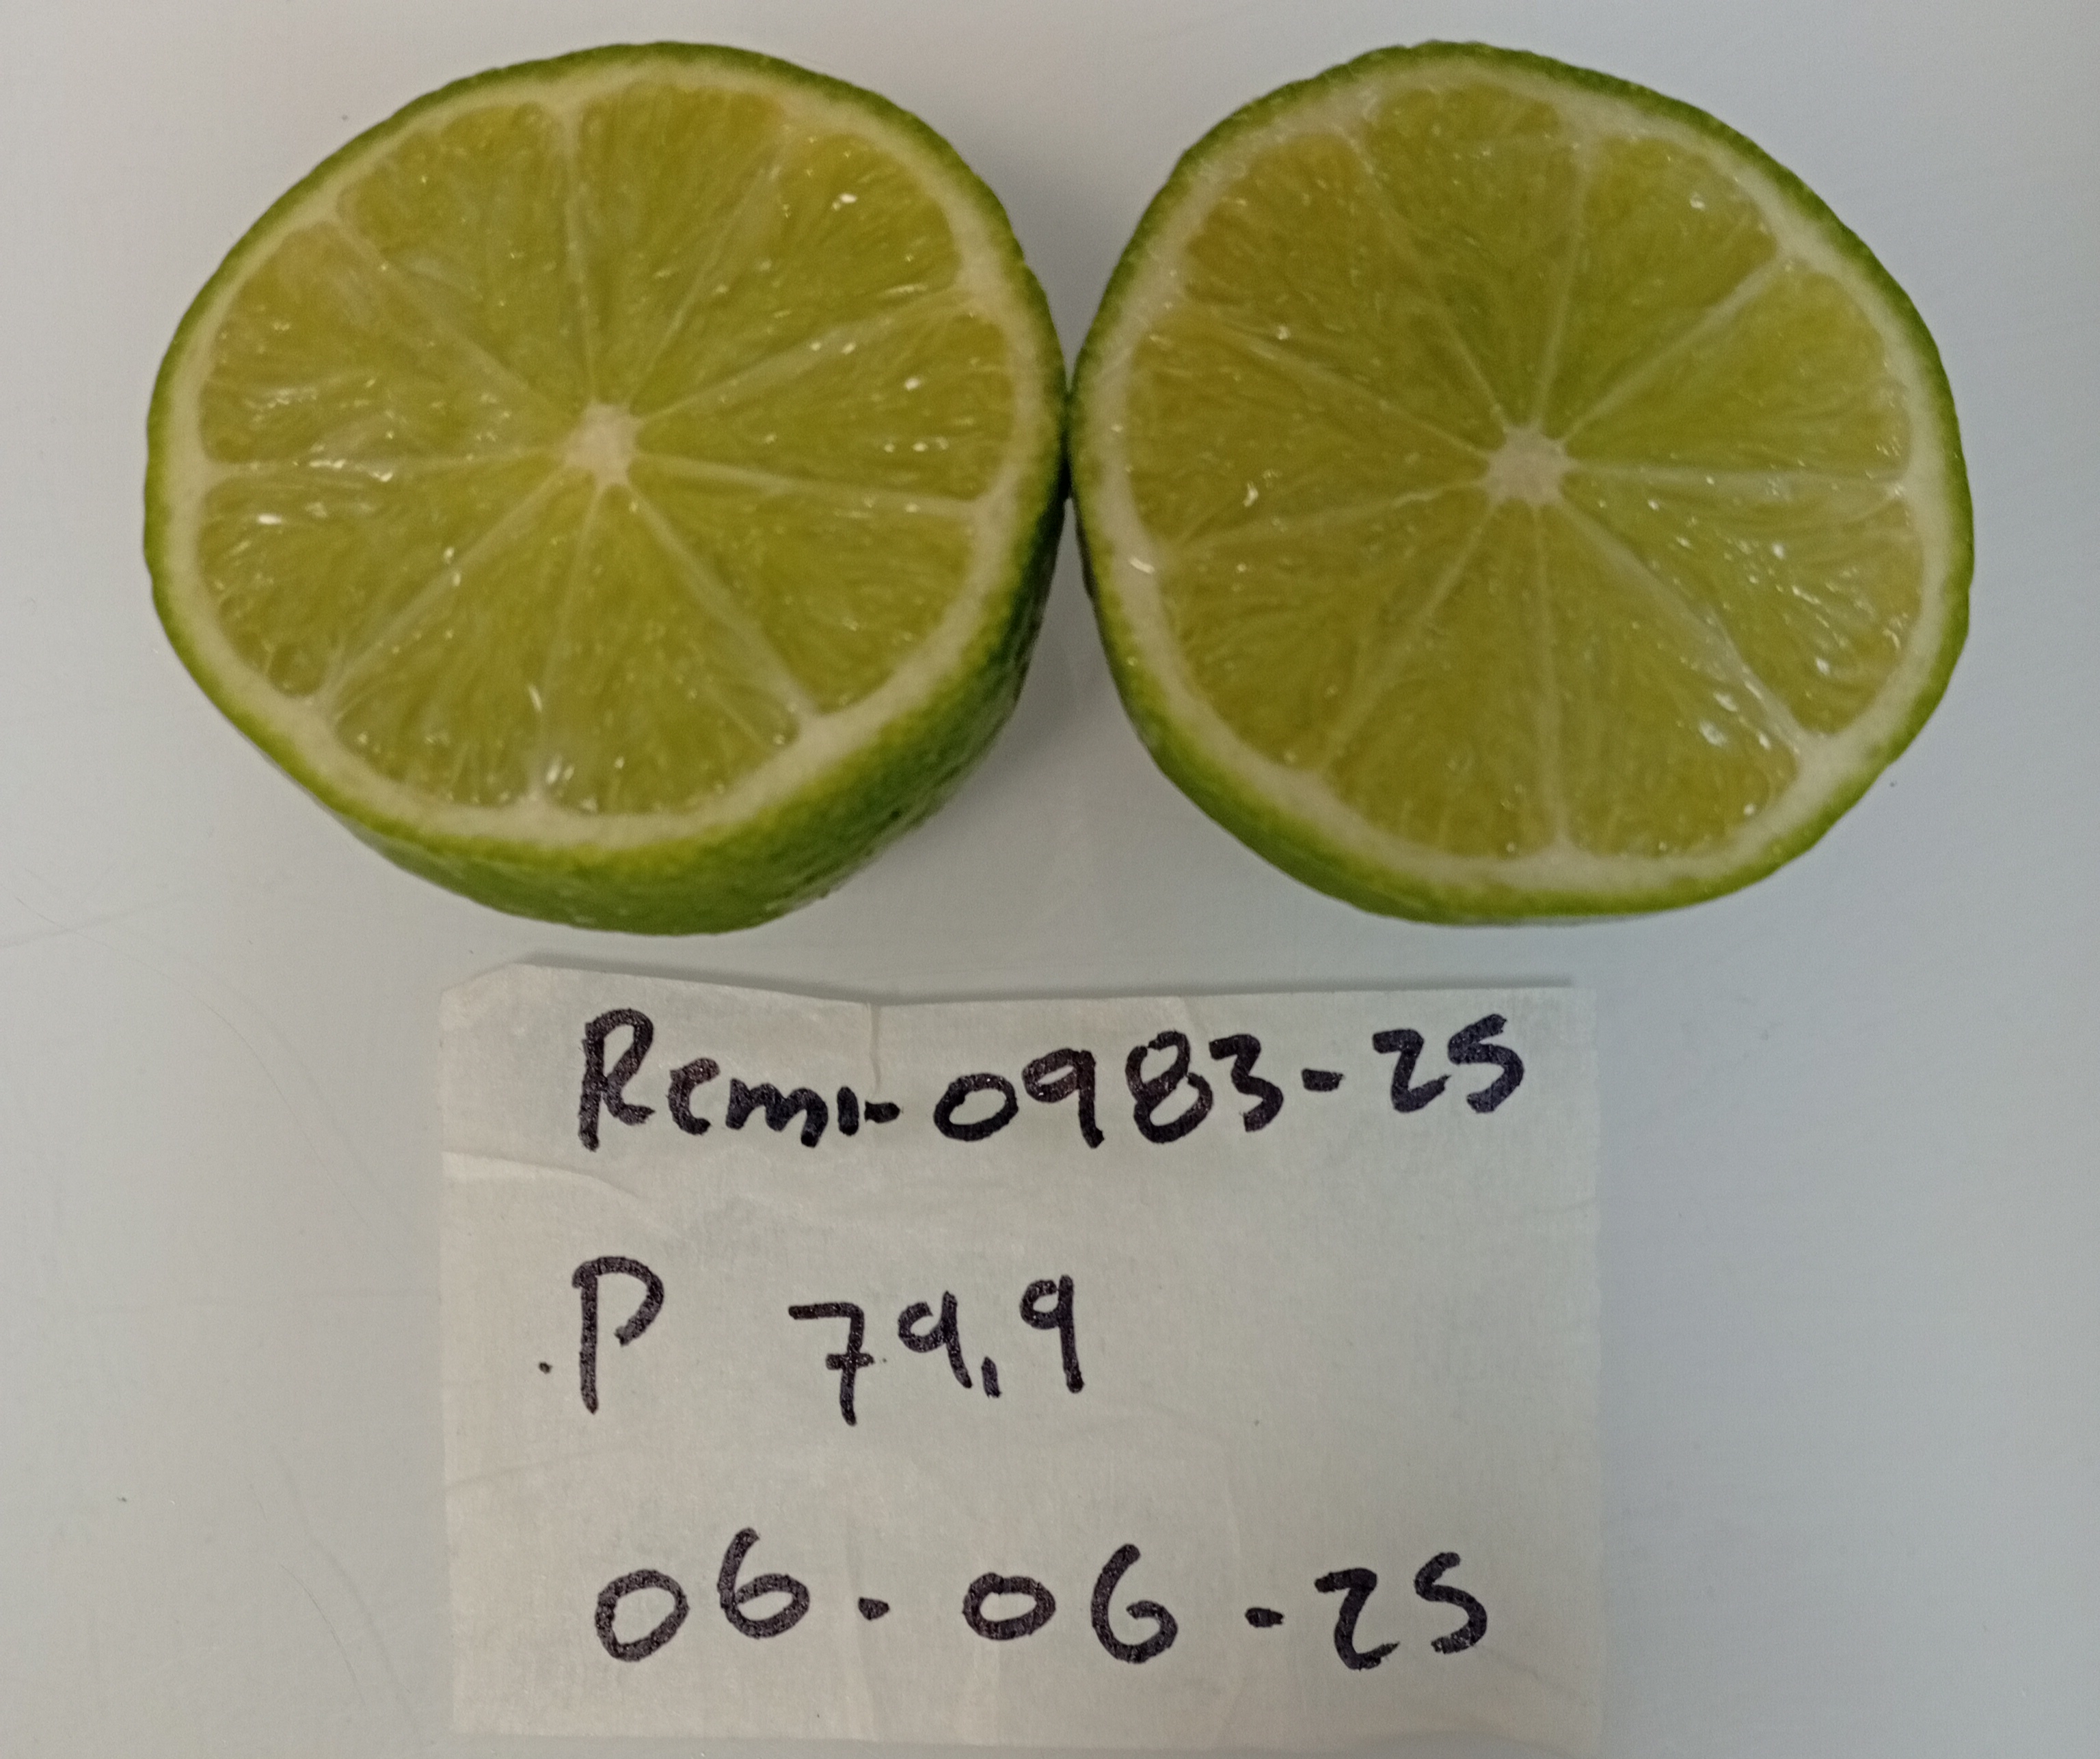 Remi-0983-25
P 79,9
06-06-25